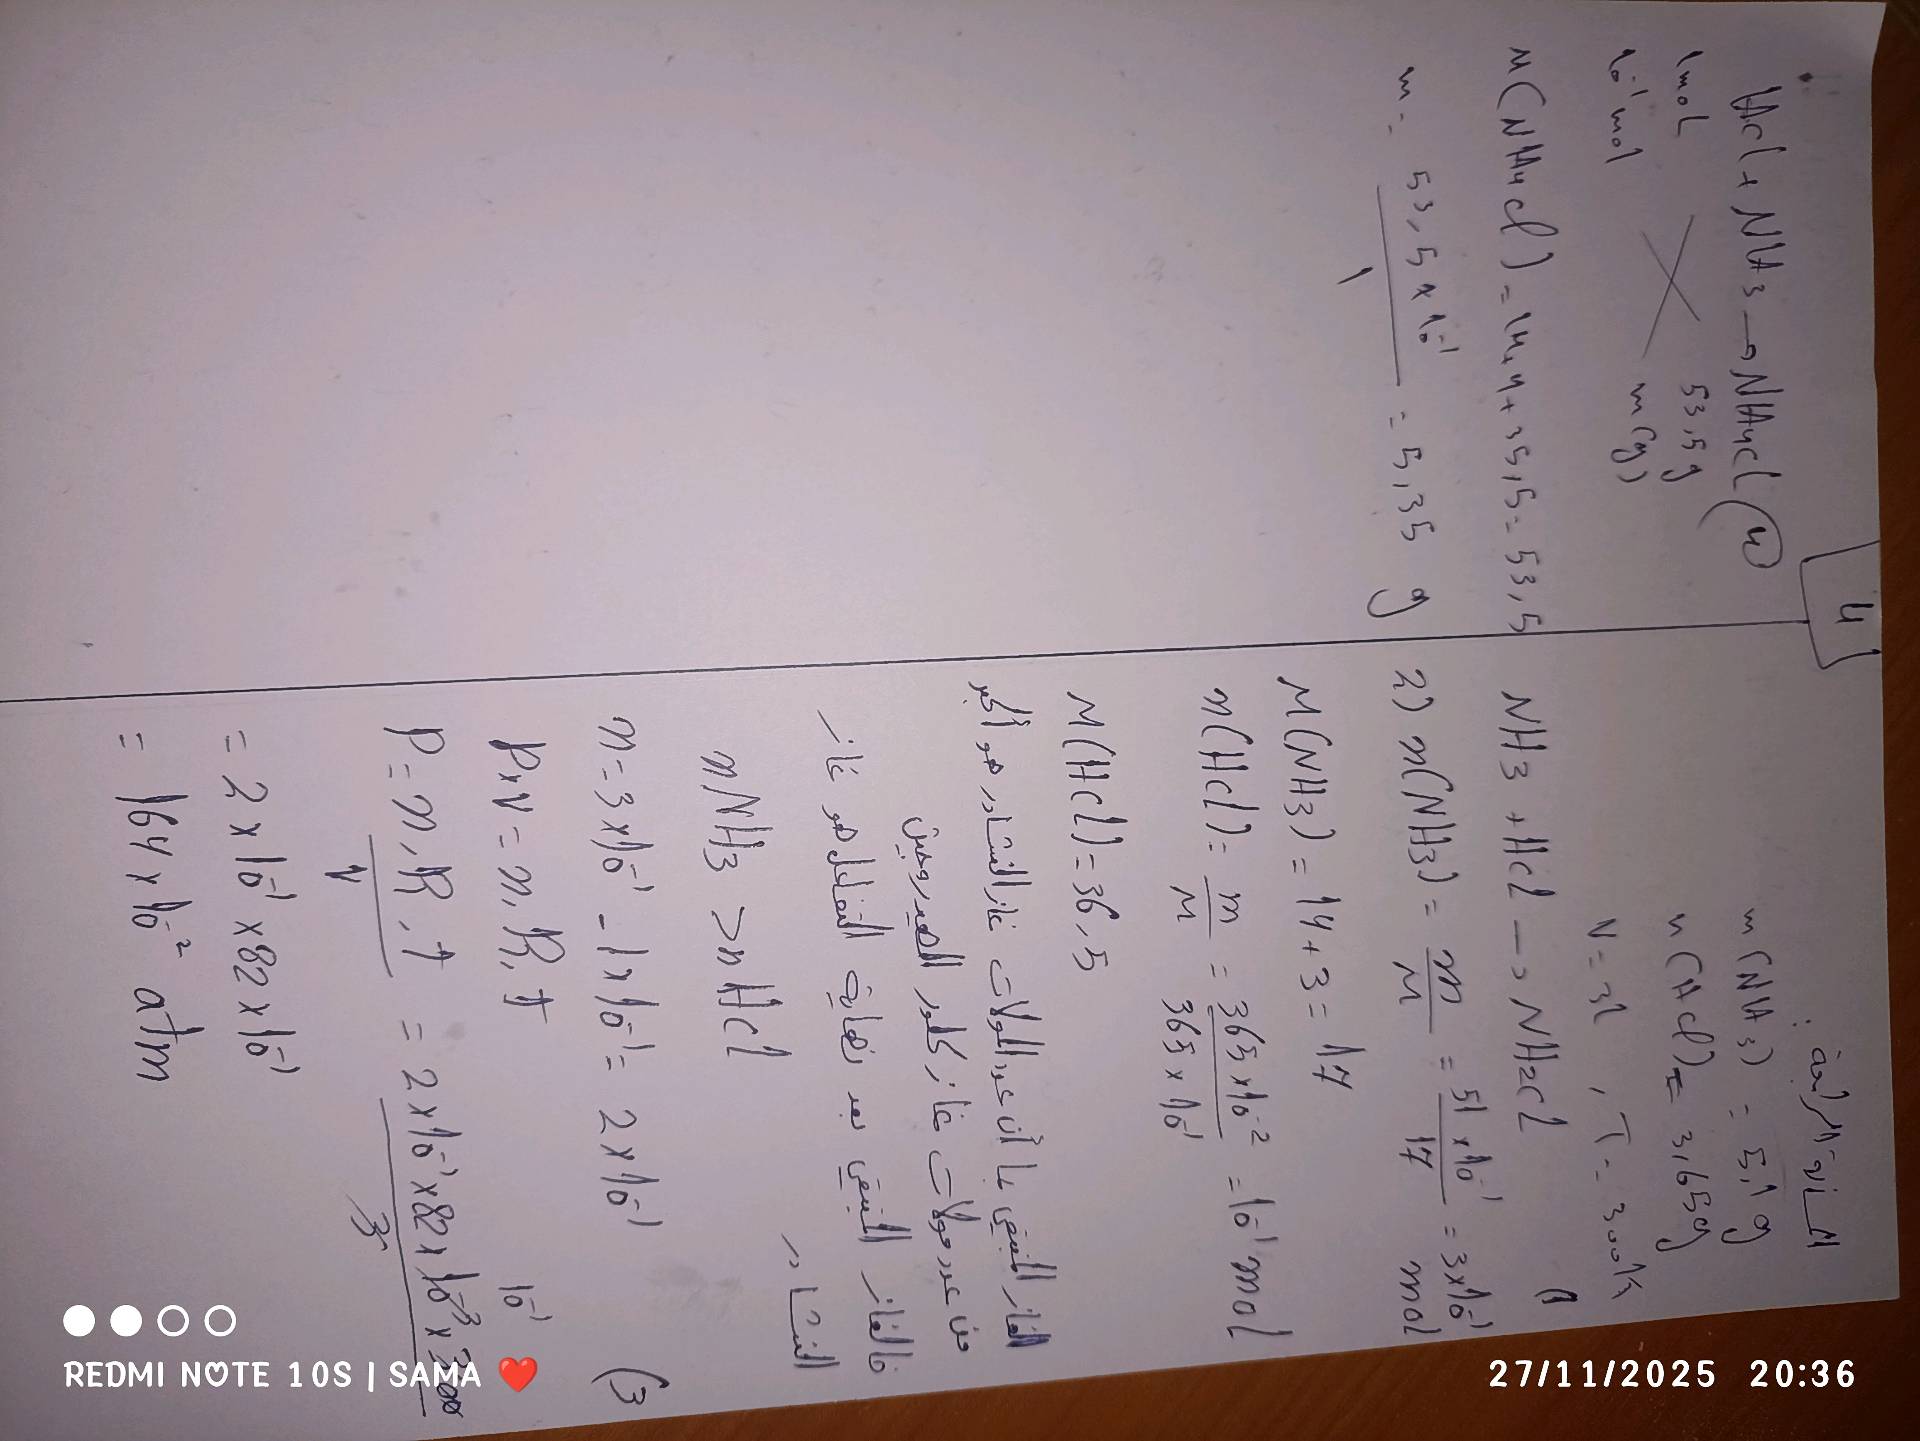 4
المسألة :
m(NH3) = 5,1 g
m(Hcl) = 3,65g
V = 3l , T = 300k
1)
NH3 + Hcl → NH2cl
2) n(NH3) = m/M = 51×10⁻¹/17 = 3×10⁻¹ mol
M(NH3) = 14+3 = 17
n(Hcl) = m/M = 365×10⁻²/365×10⁻¹ = 10⁻¹ mol
M(Hcl) = 36,5
الغاز المتبقي بما أن عدد المولات غاز النشادر هو أكبر
من عدد مولات غاز كلور الهيدروجين
فالغاز المتبقي بعد نهاية التفاعل هو غاز
النشادر
nNH3 > nHcl
3)
n = 3×10⁻¹ - 1×10⁻¹ = 2×10⁻¹
P×V = n.R.t
10⁻¹
P = n.R.t/V = 2×10⁻¹×82×10⁻³×300/3
= 2×10⁻¹×82×10⁻¹
= 164×10⁻² atm
Hcl + NH3 → NH4cl (4
1mol 53,5g
10⁻¹mol m(g)
M(NH4cl) = 14+4+35,5 = 53,5
m = 53,5×10⁻¹/1 = 5,35 g
REDMI NOTE 10S | SAMA ❤️
27/11/2025 20:36